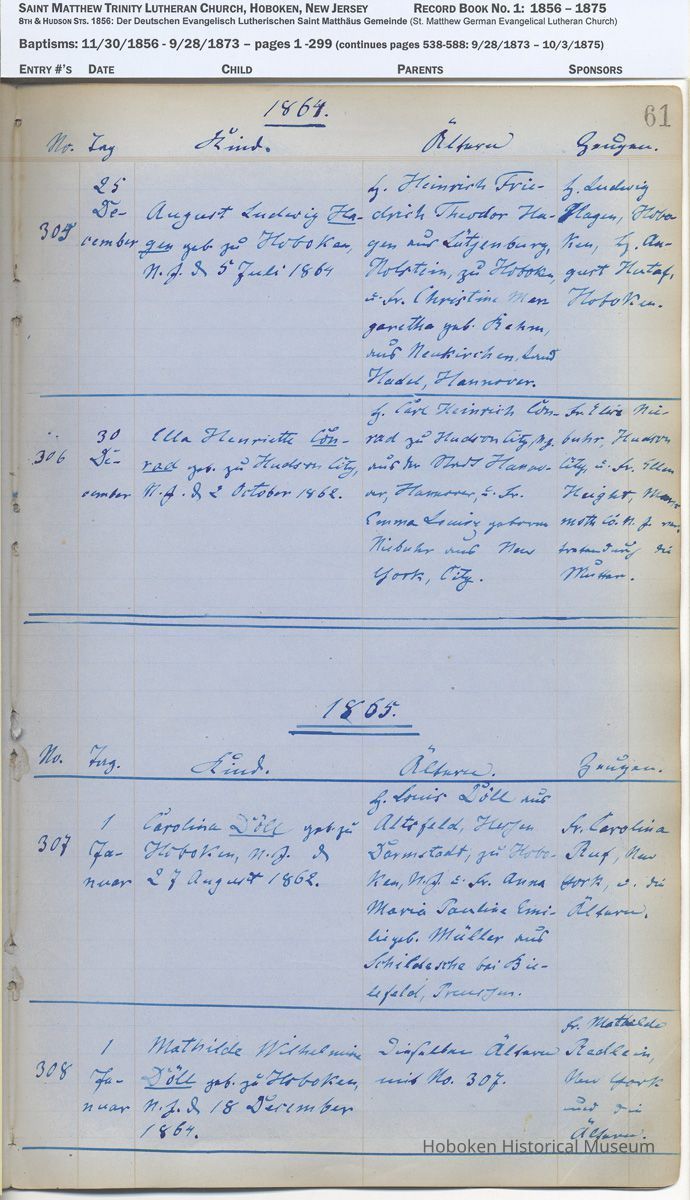 SAINT MATTHEW TRINITY LUTHERAN CHURCH, HOBOKEN, NEW JERSEY RECORD BOOK NO. 1: 1856 – 1875
8TH & HUDSON STS. 1856: Der Deutschen Evangelisch Lutherischen Saint Matthäus Gemeinde (St. Matthew German Evangelical Lutheran Church)
Baptisms: 11/30/1856 - 9/28/1873 – pages 1 -299 (continues pages 538-588: 9/28/1873 – 10/3/1875)
ENTRY #'S DATE CHILD PARENTS SPONSORS
1864.
61
No. Tag Kind. Ältern Zeugen.
305
25
De-
cember
August Ludwig Ha-
gen geb. zu Hoboken,
N.J. d. 5 Juli 1864
H. Heinrich Frie-
drich Theodor Ha-
gen aus Lütjenburg,
Holstein, zu Hoboken,
u. Fr. Christine Mar
garetha geb. Rehm,
aus Neukirchen, Land
Hadel, Hannover.
H. Ludwig
Hagen, Hobo
ken, H. Au-
gust Hutaf,
Hoboken.
306
30
De-
cember
Ella Henriette Con-
rad geb. zu Hudson City,
N.J. d. 2 October 1862.
H. Carl Heinrich Con-
rad zu Hudson City, N.J.
aus der Stadt Hanno-
ver, Hannover, u. Fr.
Emma Louise geborne
Niebuhr aus New
York, City.
Fr. Elise Nie-
buhr, Hudson
City, u. Fr. Ellen
Height, Mon
moth Co. N.J. ver
treten durch die
Mutter.
1865.
No. Tag. Kind. Ältern. Zeugen.
307
1
Ja-
nuar
Carolina Döll geb. zu
Hoboken, N.J. d.
27 August 1862.
H. Louis Döll aus
Altsfeld, Hessen
Darmstadt, zu Hobo-
ken, N.J. u. Fr. Anna
Maria Pauline Emi-
lie geb. Müller aus
Schildesche bei Bie-
lefeld, Preussen.
Fr. Carolina
Ruf, New
York, u. die
Ältern.
308
1
Ja-
nuar
Mathilde Wilhelmine
Döll geb. zu Hoboken,
N.J. d. 18 December
1864.
Dieselben Ältern
mit No. 307.
Fr. Mathilde
Redlein,
New York
und die
Ältern.
Hoboken Historical Museum